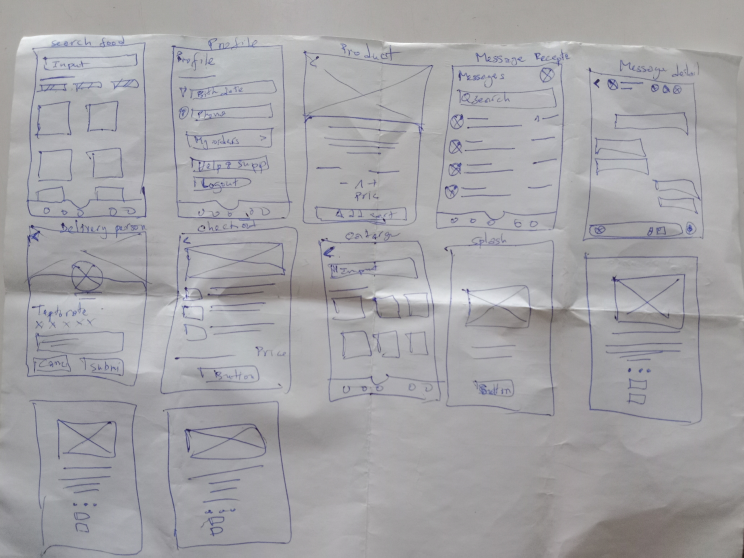 search food
Input
Profile
Profile
Birth date
Phone
My orders >
Help & Supp
Logout
Product
<
- 1 +
Pric
Add cart
Message Recepte
Messages
Qsearch
Message detail
<
Delivery person
<
Tap to rate
x x x x x
Canc
Submi
Checkout
<
Price
Button
<
Input
Splash
Button